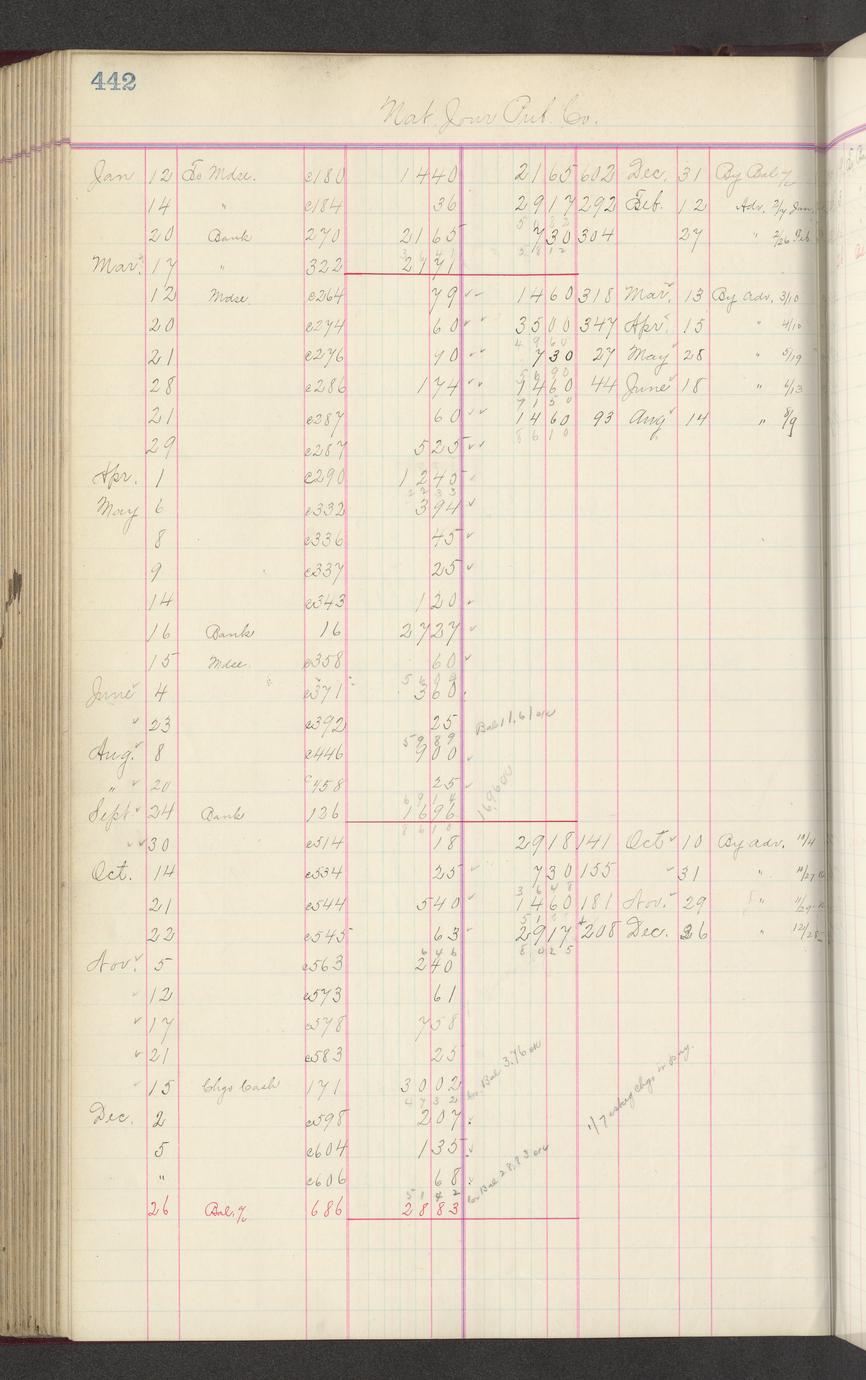 442
Nat. Jour Pub. Co.
Jan 12 To Mdse. c180 1440 2165 602 Dec. 31 By Bal %
14 " c184 36 2917 292 Feb. 12 Adv. 2/4 Jan.
20 Bank 270 2165 730 304 27 " 2/26 Feb
Mar. 17 " 322 2171
12 Mdse c264 79 1460 318 Mar. 13 By adv. 3/10
20 c274 60 3500 347 Apr. 15 " 4/10
4960
21 c276 90 730 27 May 28 " 5/19
5690
28 c286 174 1460 44 June 18 " 6/13
7150
21 c287 60 1460 93 Aug 14 " 8/9
8610
29 c287 525
Apr. 1 c290 1245
2233
May 6 c332 394
8 c336 45
9 c337 25
14 c343 120
16 Bank 16 2727
15 Mdse. c358 60
5609
June 4 c371 360
23 c392 25 Bal 11.61 ok
5989
Aug. 8 c446 900
" 20 c458 25
6914
Sept 24 Bank 126 1696 1696 ok
8610
30 c514 18 2918 141 Oct 10 By adv. 10/4
Oct. 14 c534 25 730 155 31 " 10/27
3648
21 c544 540 1460 181 Nov. 29 " 11/29
22 c545 63 2917 208 Dec. 26 " 12/28
646 8025
Nov. 5 c563 240
12 c573 61
17 c578 758
21 c583 25
15 Chgo Cash 171 3002 Co. Bal 3.76 ok
4732
Dec. 2 c598 207 1/7 asking Chgo in pay.
5 c604 135
" c606 68
5142
26 Bal. % 686 2883 Co. Bal 28.83 ok